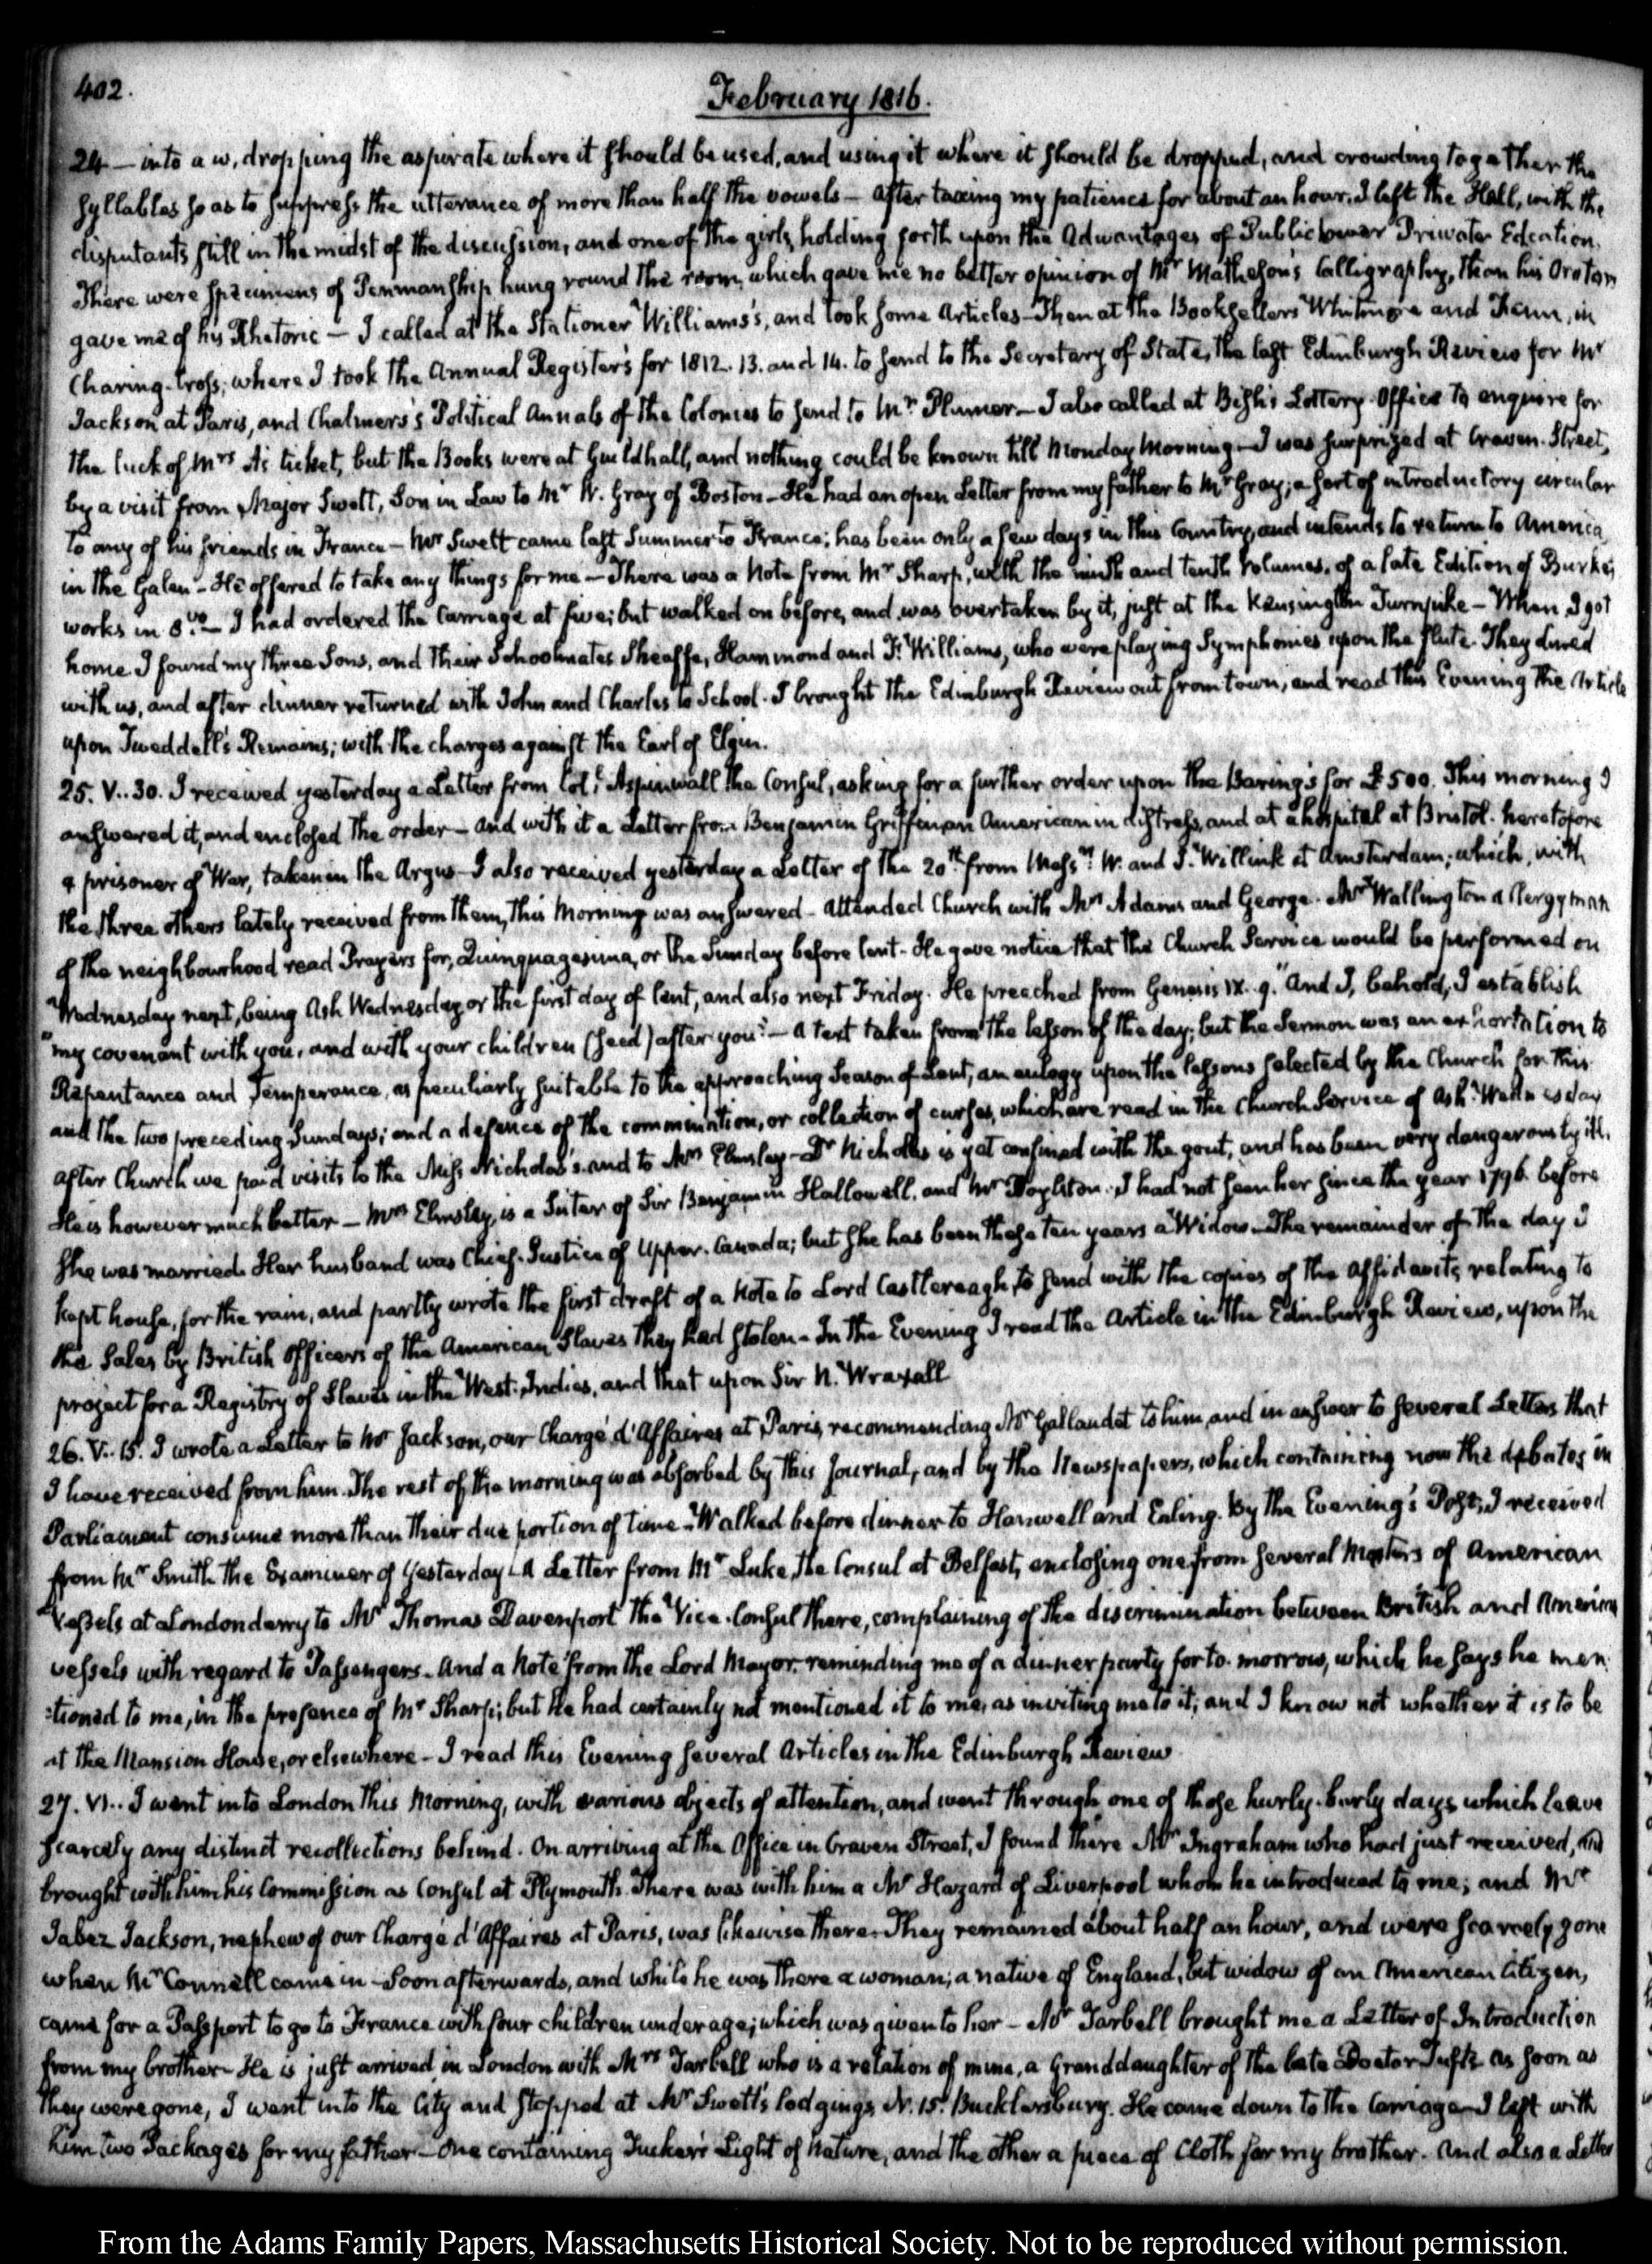 402.
February 1816.
24 — into a w, dropping the aspirate where it should be used, and using it where it should be dropped, and crowding together the
syllables so as to suppress the utterance of more than half the vowels — After taxing my patience for about an hour, I left the Hall, with the
disputants still in the midst of the discussion, and one of the girls, holding forth upon the Adwantages of Public Priwate Edcation.
There were specimens of Penmanship hung round the room, which gave me no better opinion of Mr. Matheson's Calligraphy, than his Orators
gave me of his Rhetoric — I called at the Stationer Williams's, and took some Articles — Then at the Booksellers Whitmore and Fenn, in
Charing-Cross; where I took the Annual Registers for 1812. 13. and 14. to send to the Secretary of State, the last Edinburgh Review for Mr
Jackson at Paris, and Chalmers's Political Annals of the Colonies to send to Mr. Plumer — I also called at Bish's Lottery-Office to enquire for
the luck of Mrs A's ticket, but the Books were at Guildhall, and nothing could be known till Monday Morning — I was surprized at Craven-Street,
by a visit from Major Swett, Son in Law to Mr W. Gray of Boston — He had an open Letter from my father to Mr Gray; a sort of introductory circular
to any of his friends in France — Mr Swett came last Summer to France; has been only a few days in this Country, and intends to return to America
in the Galen — He offered to take any things for me — There was a Note from Mr Sharp, with the ninth and tenth Volumes, of a late Edition of Burke's
works in 8vo — I had ordered the Carriage at five; but walked on before, and was overtaken by it, just at the Kensington Turnpike — When I got
home I found my three Sons, and their Schoolmates Sheaffe, Hammond and F. Williams, who were playing Symphonies upon the flute. They dined
with us, and after dinner returned with John and Charles to School. I brought the Edinburgh Review out from town, and read this Evening the Article
upon Tweddell's Remains; with the charges against the Earl of Elgin.
25. V..30. I received yesterday a Letter from Coll. Aspinwall the Consul, asking for a further order upon the Baring's for £500. This morning I
answered it, and enclosed the order — and with it a Letter from Benjamin Griffin an American in distress, and at a hospital at Bristol. heretofore
a prisoner of War, taken in the Argus — I also received yesterday a Letter of the 20th from Messrs W. and J. Willink at Amsterdam; which, with
the three others lately received from them, this Morning was answered — Attended Church with Mrs Adams and George. Mr Wallington a Clergyman
of the neighbourhood read Prayers for, Quinquagesima, or the Sunday before lent — He gave notice that the Church Service would be performed on
Wednesday next, being Ash Wednesday or the first day of lent, and also next Friday. He preached from Genesis IX..9. "And I, behold, I establish
"my covenant with you, and with your children (seed) after you" — A text taken from the lesson of the day; but the Sermon was an exhortation to
Repentance and Temperance, as peculiarly suitable to the approaching Season of Lent, an eulogy upon the lessons selected by the Church for this
and the two preceding Sundays; and a defence of the commination, or collection of curses, which are read in the Church Service of Ash-Wednesday
After Church we paid visits to the Miss Nicholas's and to Mrs Elmsley — Dr Nicholas is yet confined with the gout, and has been very dangerously ill.
He is however much better — Mrs Elmsley, is a Sister of Sir Benjamin Hallowell, and Mr Boylston. I had not seen her since the year 1796. before
she was married. Her husband was Chief-Justice of Upper-Canada; but she has been these ten years a Widow — The remainder of the day I
kept house, for the rain, and partly wrote the first draft of a Note to Lord Castlereagh, to send with the copies of the affidavits, relating to
the Sales by British Officers of the American Slaves they had stolen — In the Evening I read the Article in the Edinburgh Review, upon the
project for a Registry of Slaves in the West-Indies, and that upon Sir N. Wraxall
26. V..15. I wrote a Letter to Mr Jackson, our Chargé d'Affaires at Paris, recommending Mr Gallaudet to him, and in answer to several Letters that
I have received from him. The rest of the morning was absorbed by this Journal, and by the Newspapers, which containing now the debates in
Parliament consume more than their due portion of time — Walked before dinner to Hanwell and Ealing. By the Evening's Post, I received
from Mr Smith the Examiner of yesterday — A Letter from Mr Luke, the Consul at Belfast, enclosing one from several Masters of American
Vessels at Londonderry to Mr Thomas Davenport the Vice-Consul there, complaining of the discrimination between British and American
vessels with regard to Passengers — And a Note from the Lord Mayor, reminding me of a dinner party for to-morrow, which he says he men
:tioned to me, in the presence of Mr Sharp; but he had certainly not mentioned it to me, as inviting me to it; and I know not whether it is to be
at the Mansion House, or elsewhere — I read this Evening several Articles in the Edinburgh Review
27. VI.. I went into London this Morning, with various objects of attention, and went through one of those hurly-burly days which leave
scarcely any distinct recollections behind. On arriving at the Office in Craven Street, I found there Mr Ingraham who had just received, and
brought with him his Commission as Consul at Plymouth. There was with him a Mr Hazard of Liverpool whom he introduced to me; and Mr
Jabez Jackson, nephew of our Chargé d'Affaires at Paris, was likewise there. They remained about half an hour, and were scarcely gone
when Mr Connell came in — Soon afterwards, and while he was there a woman; a native of England, but widow of an American Citizen,
came for a Passport to go to France with four children under age; which was given to her — Mr Tarbell brought me a Letter of Introduction
from my brother — He is just arrived in London with Mrs Tarbell who is a relation of mine, a Granddaughter of the late Doctor Tufts. As soon as
they were gone, I went into the City and stopped at Mr Swett's lodgings, N. 15. Bucklersbury. He came down to the Carriage — I left with
him two Packages for my father — One containing Tucker's Light of Nature, and the other a piece of Cloth for my brother. And also a Letter
From the Adams Family Papers, Massachusetts Historical Society. Not to be reproduced without permission.